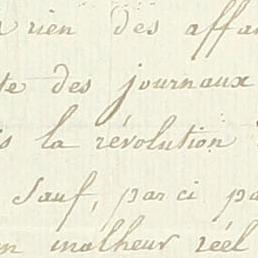 rien des affai
te des journaux
is la révolution
Sauf, par ci pa
un malheur réel